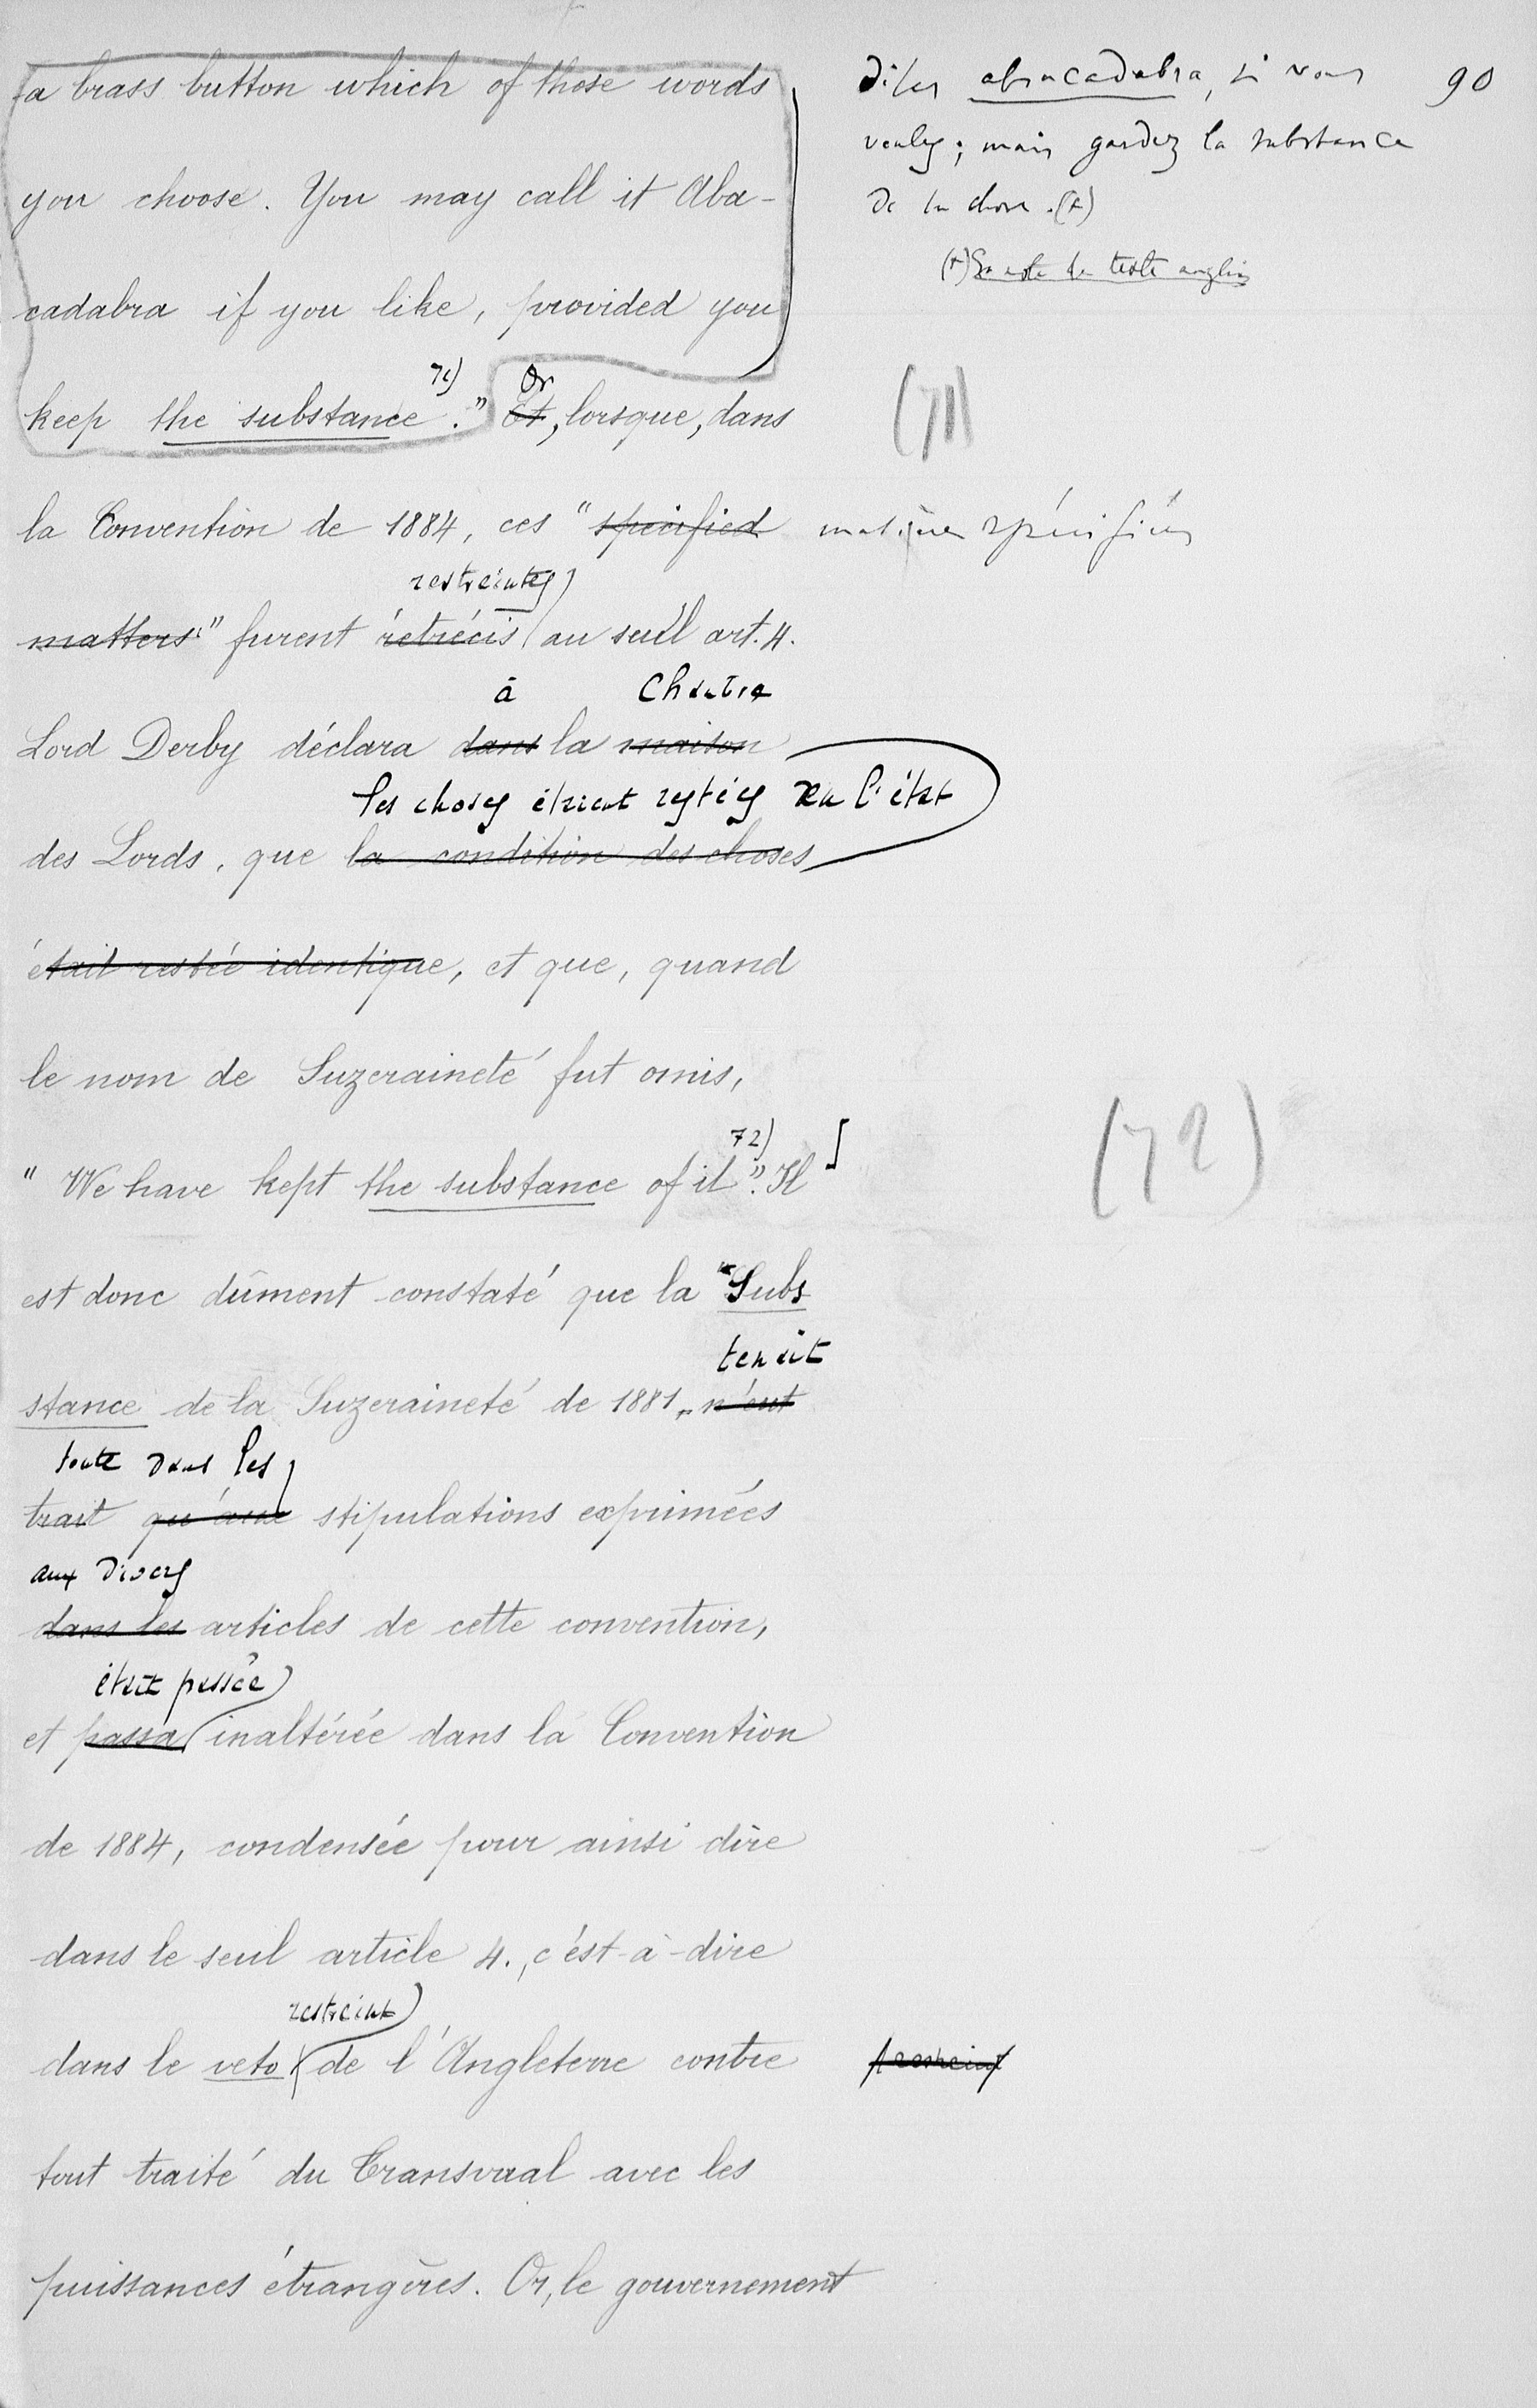 90
Dites abracadabra, si vous
voulez; mais gardez la substance
de la chose. (*)
a brass button which of those words
you choose. You may call it Aba-
cadabra if you like, provided you
71) Or
keep the substance." Et, lorsque, dans
(71)
la Convention de 1884, ces "specified
matières spécifiées
restreintes
matters" furent rétrécis au seul art. 4.
à Chambre
Lord Derby déclara dans la maison
les choses étaient restées en l'état
des Lords, que la condition des choses
était restée identique, et que, quand
le nom de Suzeraineté fut omis,
72)
"We have kept the substance of it". Il
(72)
est donc dûment constaté que la "Subs
tenait
stance de la Suzeraineté de 1881, n'eut
toute dans les
trait stipulations exprimées
aux divers
dans les articles de cette convention,
était passée
et passa inaltérée dans la Convention
de 1884, condensée pour ainsi dire
dans le seul article 4., c'est-à-dire
restreint
dans le veto de l'Angleterre contre
restreint
tout traité du Transvaal avec les
puissances étrangères. Or, le gouvernement